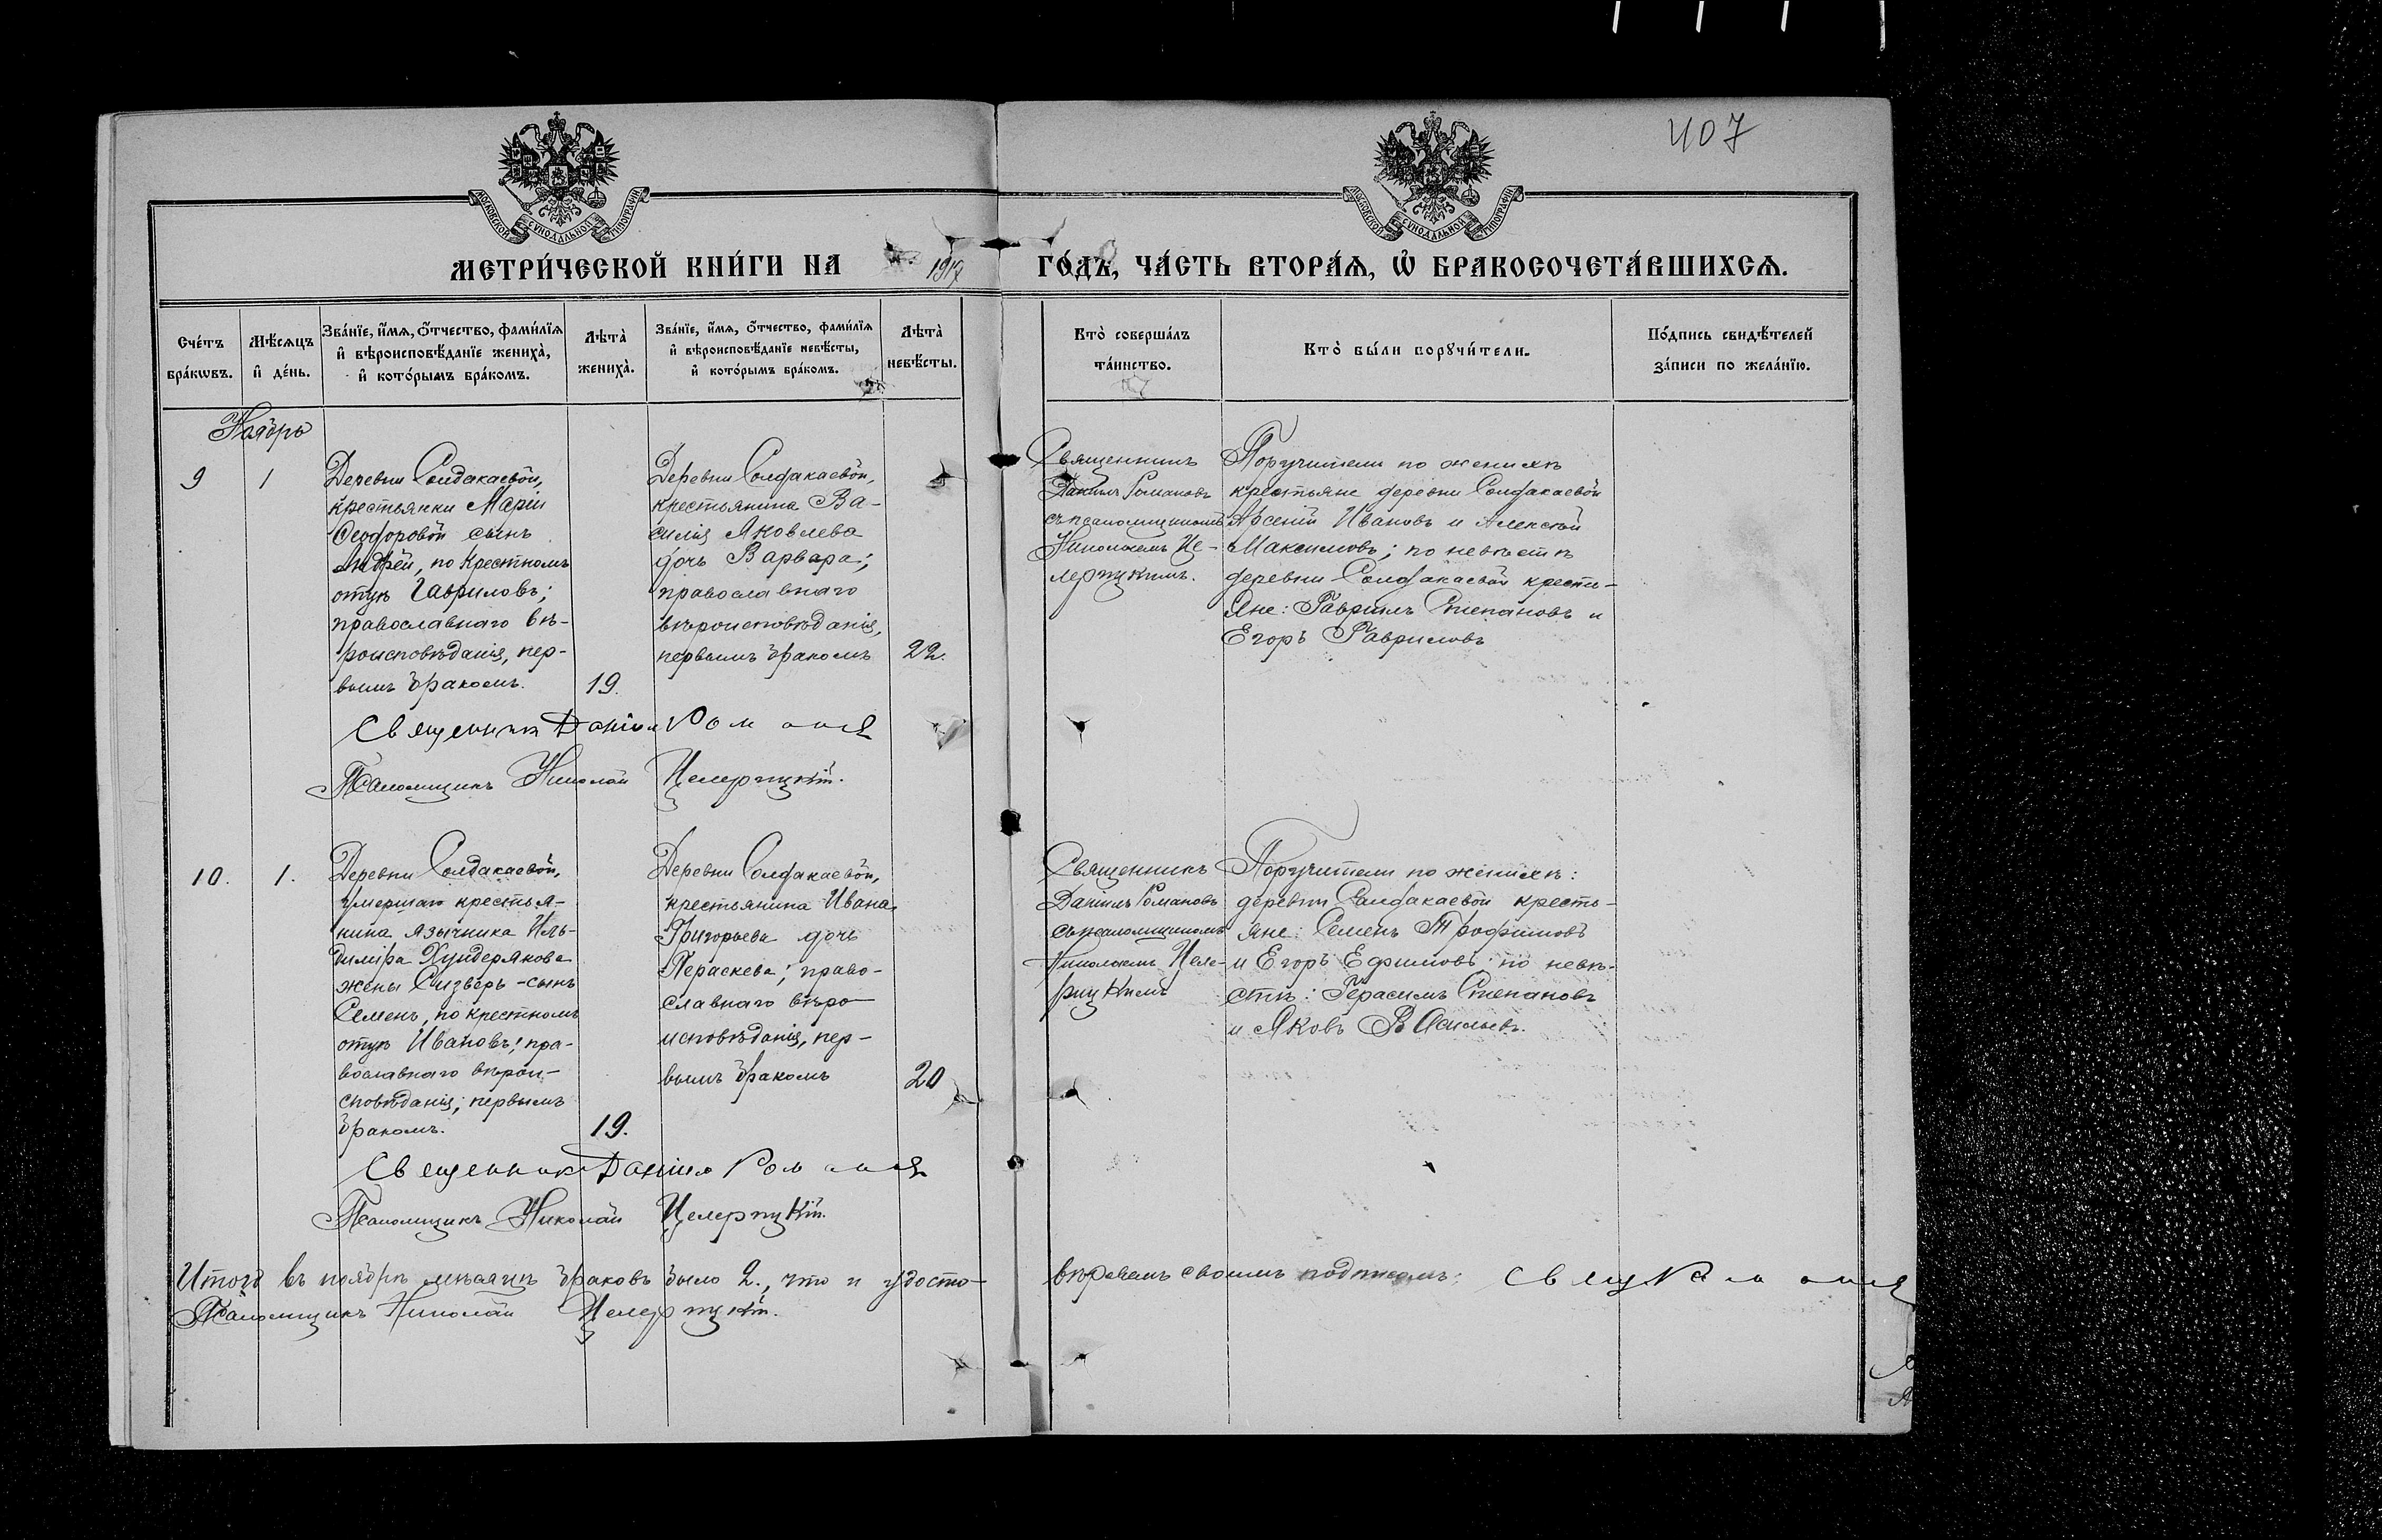 407
МОСКОВСКОЙ СѴНОДАЛЬНОЙ ТИПОГРАФІИ
МОСКОВСКОЙ СѴНОДАЛЬНОЙ ТИПОГРАФІИ
МЕТРИ́ЧЕСКОЙ КНИ́ГИ НА 1917 ГО́ДЪ, ЧА́СТЬ ВТОРА́Ѧ, Ѡ҆ БРАКОСОЧЕТА́ВШИХСѦ.
Сче́тъ
бра́кωвъ.
Мѣ́сѧцъ
и҆ де́нь.
Зва́нїе, и҆́мѧ, о҆́тчество, фами́лїѧ
и҆ вѣроисповѣ́данїе жениха̀,
и҆ кото́рымъ бра́комъ.
Лѣ́та̀
жениха̀.
Зва́нїе, и҆́мѧ, о҆́тчество, фами́лїѧ
и҆ вѣроисповѣ́данїе невѣ́сты,
и҆ кото́рымъ бра́комъ.
Лѣ́та̀
невѣ́сты.
Кто̀ соверша́лъ
та́инство.
Кто̀ бы́ли порꙋчи́тели.
По́дпись свидѣ́телей
за́писи по жела́нїю.
Ноябрь
9
1
Деревни Солдакаевой,
крестьянки Маріи
Ѳеодоровой сынъ
Андрей, по крестному
отцѣ Гавриловъ;
православнаго вѣ-
роисповѣданія, пер-
вымъ бракомъ.
19.
Деревни Солдакаевой,
крестьянина Ва-
силія Яковлева
дочь Варвара;
православнаго
вѣроисповѣданія,
первымъ бракомъ
22.
Священникъ
Даніилъ Романовъ
съ псаломщикомъ
Николаемъ Це-
лерицкимъ.
Поручители по женихѣ
крестьяне деревни Солдакаевой
Арсеній Ивановъ и Алексѣй
Максимовъ; по невѣстѣ
деревни Солдакаевой кресть-
яне: Гавріилъ Степановъ и
Егоръ Гавриловъ
Священникъ Даніилъ Романовъ
Псаломщикъ Николай Целерицкій.
10.
1.
Деревни Солдакаевой,
умершаго крестья-
нина язычника Иль-
димира Хундерякова
жены Сизверь - сынъ
Семенъ, по крестному
отцѣ Ивановъ; пра-
вославнаго вѣрои-
сповѣданія; первымъ
бракомъ.
19.
Деревни Солдакаевой,
крестьянина Ивана
Григорьева дочь
Параскева; право-
славнаго вѣро
исповѣданія, пер-
вымъ бракомъ
20
Священникъ
Даніилъ Романовъ
съ псаломщикомъ
Николаемъ Целе-
рицкимъ
Поручители по женихѣ:
деревни Солдакаевой кресть-
яне: Семенъ Трофимовъ
и Егоръ Ефимовъ по невѣ-
стѣ: Герасимъ Степановъ
и Яковъ Васильевъ.
Священникъ Даніилъ Романовъ
Псаломщикъ Николай Целерицкій.
Итого въ ноябрѣ мѣсяцѣ браковъ было 2., что и удосто-
вѣряемъ своимъ подписомъ: Свящ Романовъ
Псаломщикъ Николай Целерицкій.